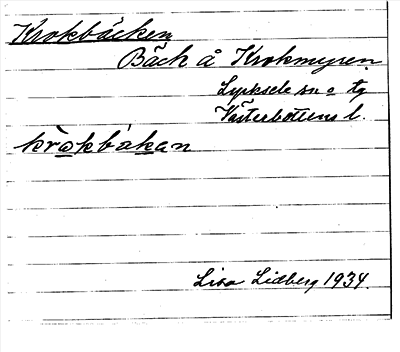 Krokbäcken
Bäck å Krokmyren
Lycksele sn o tg
Västerbottens l.
kròkbäkan
Lisa Lidberg 1934.